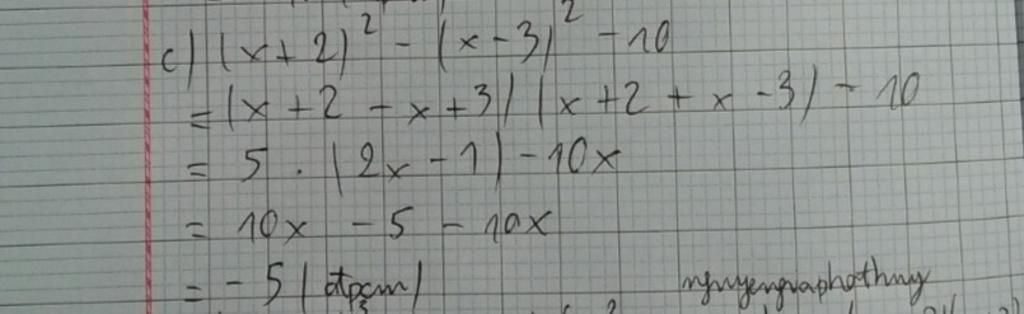 c) (x+2)² - (x-3)² - 10
= (x+2 - x+3) (x+2 + x-3) - 10
= 5 . (2x - 1) - 10x
= 10x - 5 - 10x
= -5 (đpcm)